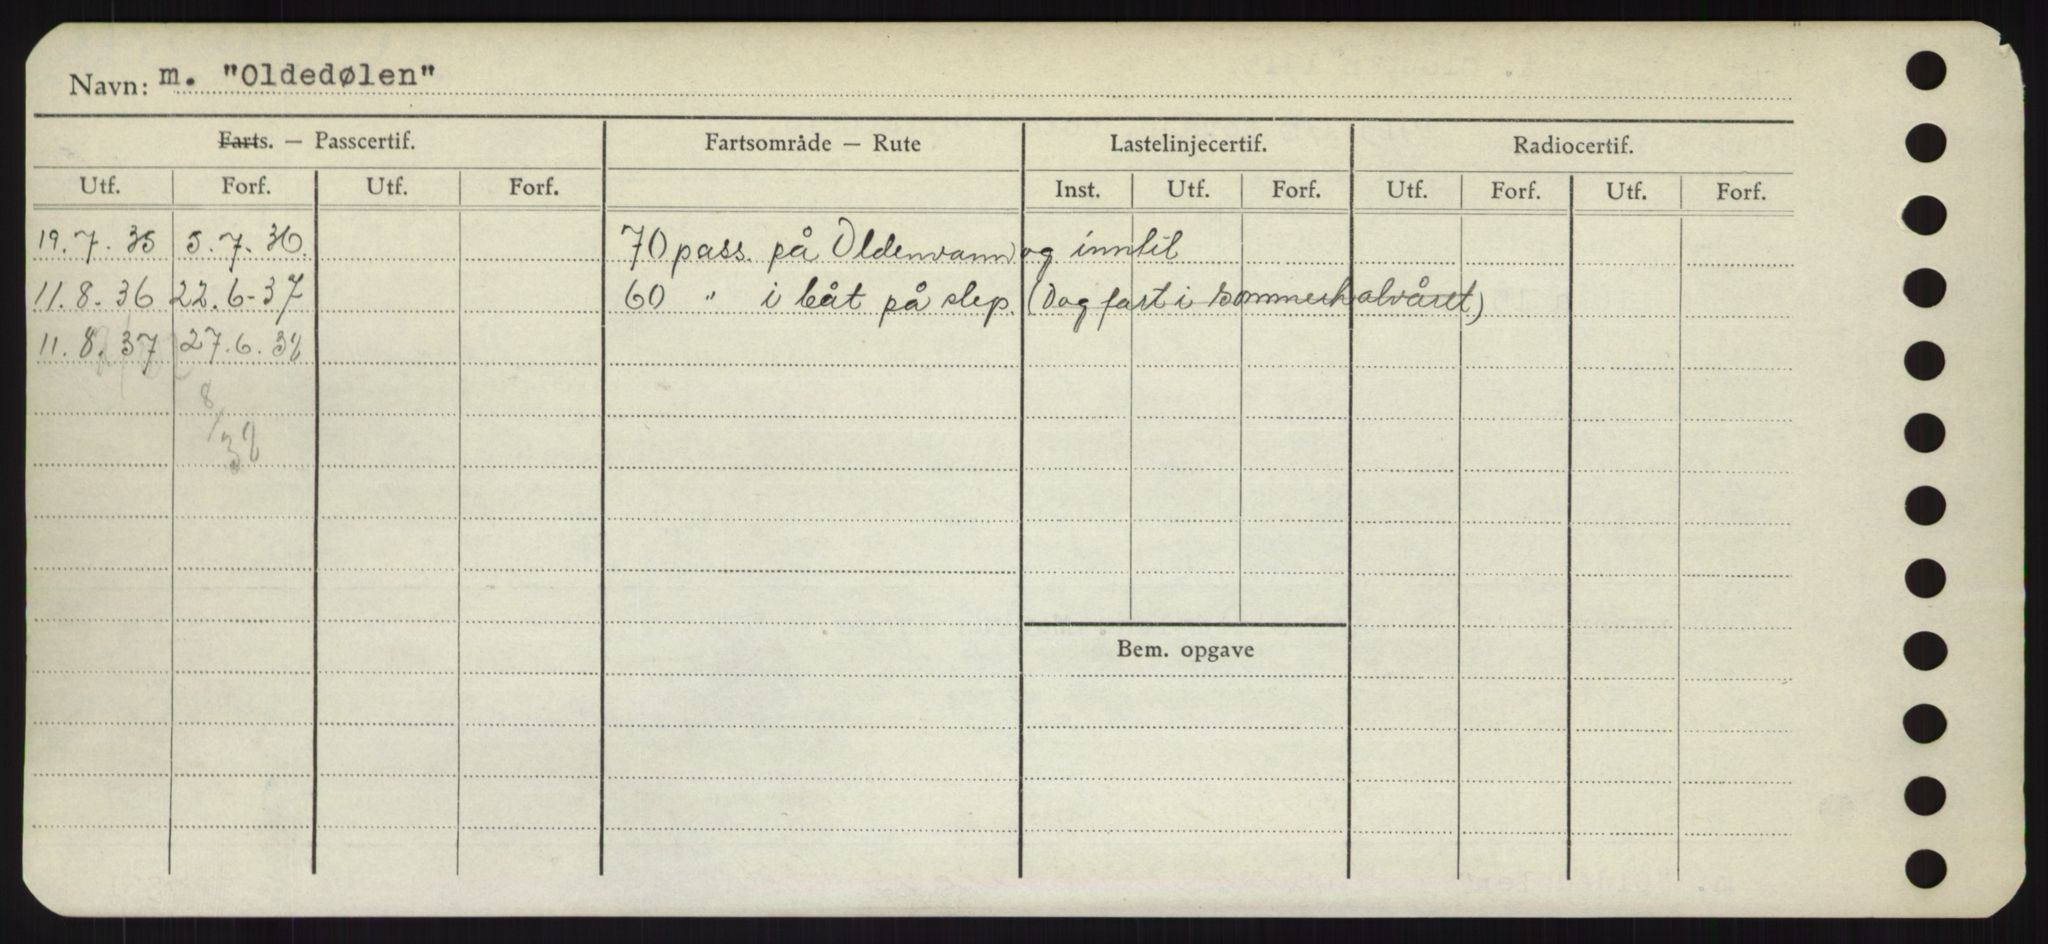 Navn: m. "Oldedølen"
Farts. — Passcertif. Fartsområde — Rute Lastelinjecertif. Radiocertif.
Utf. Forf. Utf. Forf. Inst. Utf. Forf. Utf. Forf. Utf. Forf.
19.7.35 5.7.36. 70 pass. på Oldenvann og inntil
11.8.36 22.6-37 60 " i båt på slep. (Dag fart i sommerhalvåret)
11.8.37 27.6.38
8/38
Bem. opgave